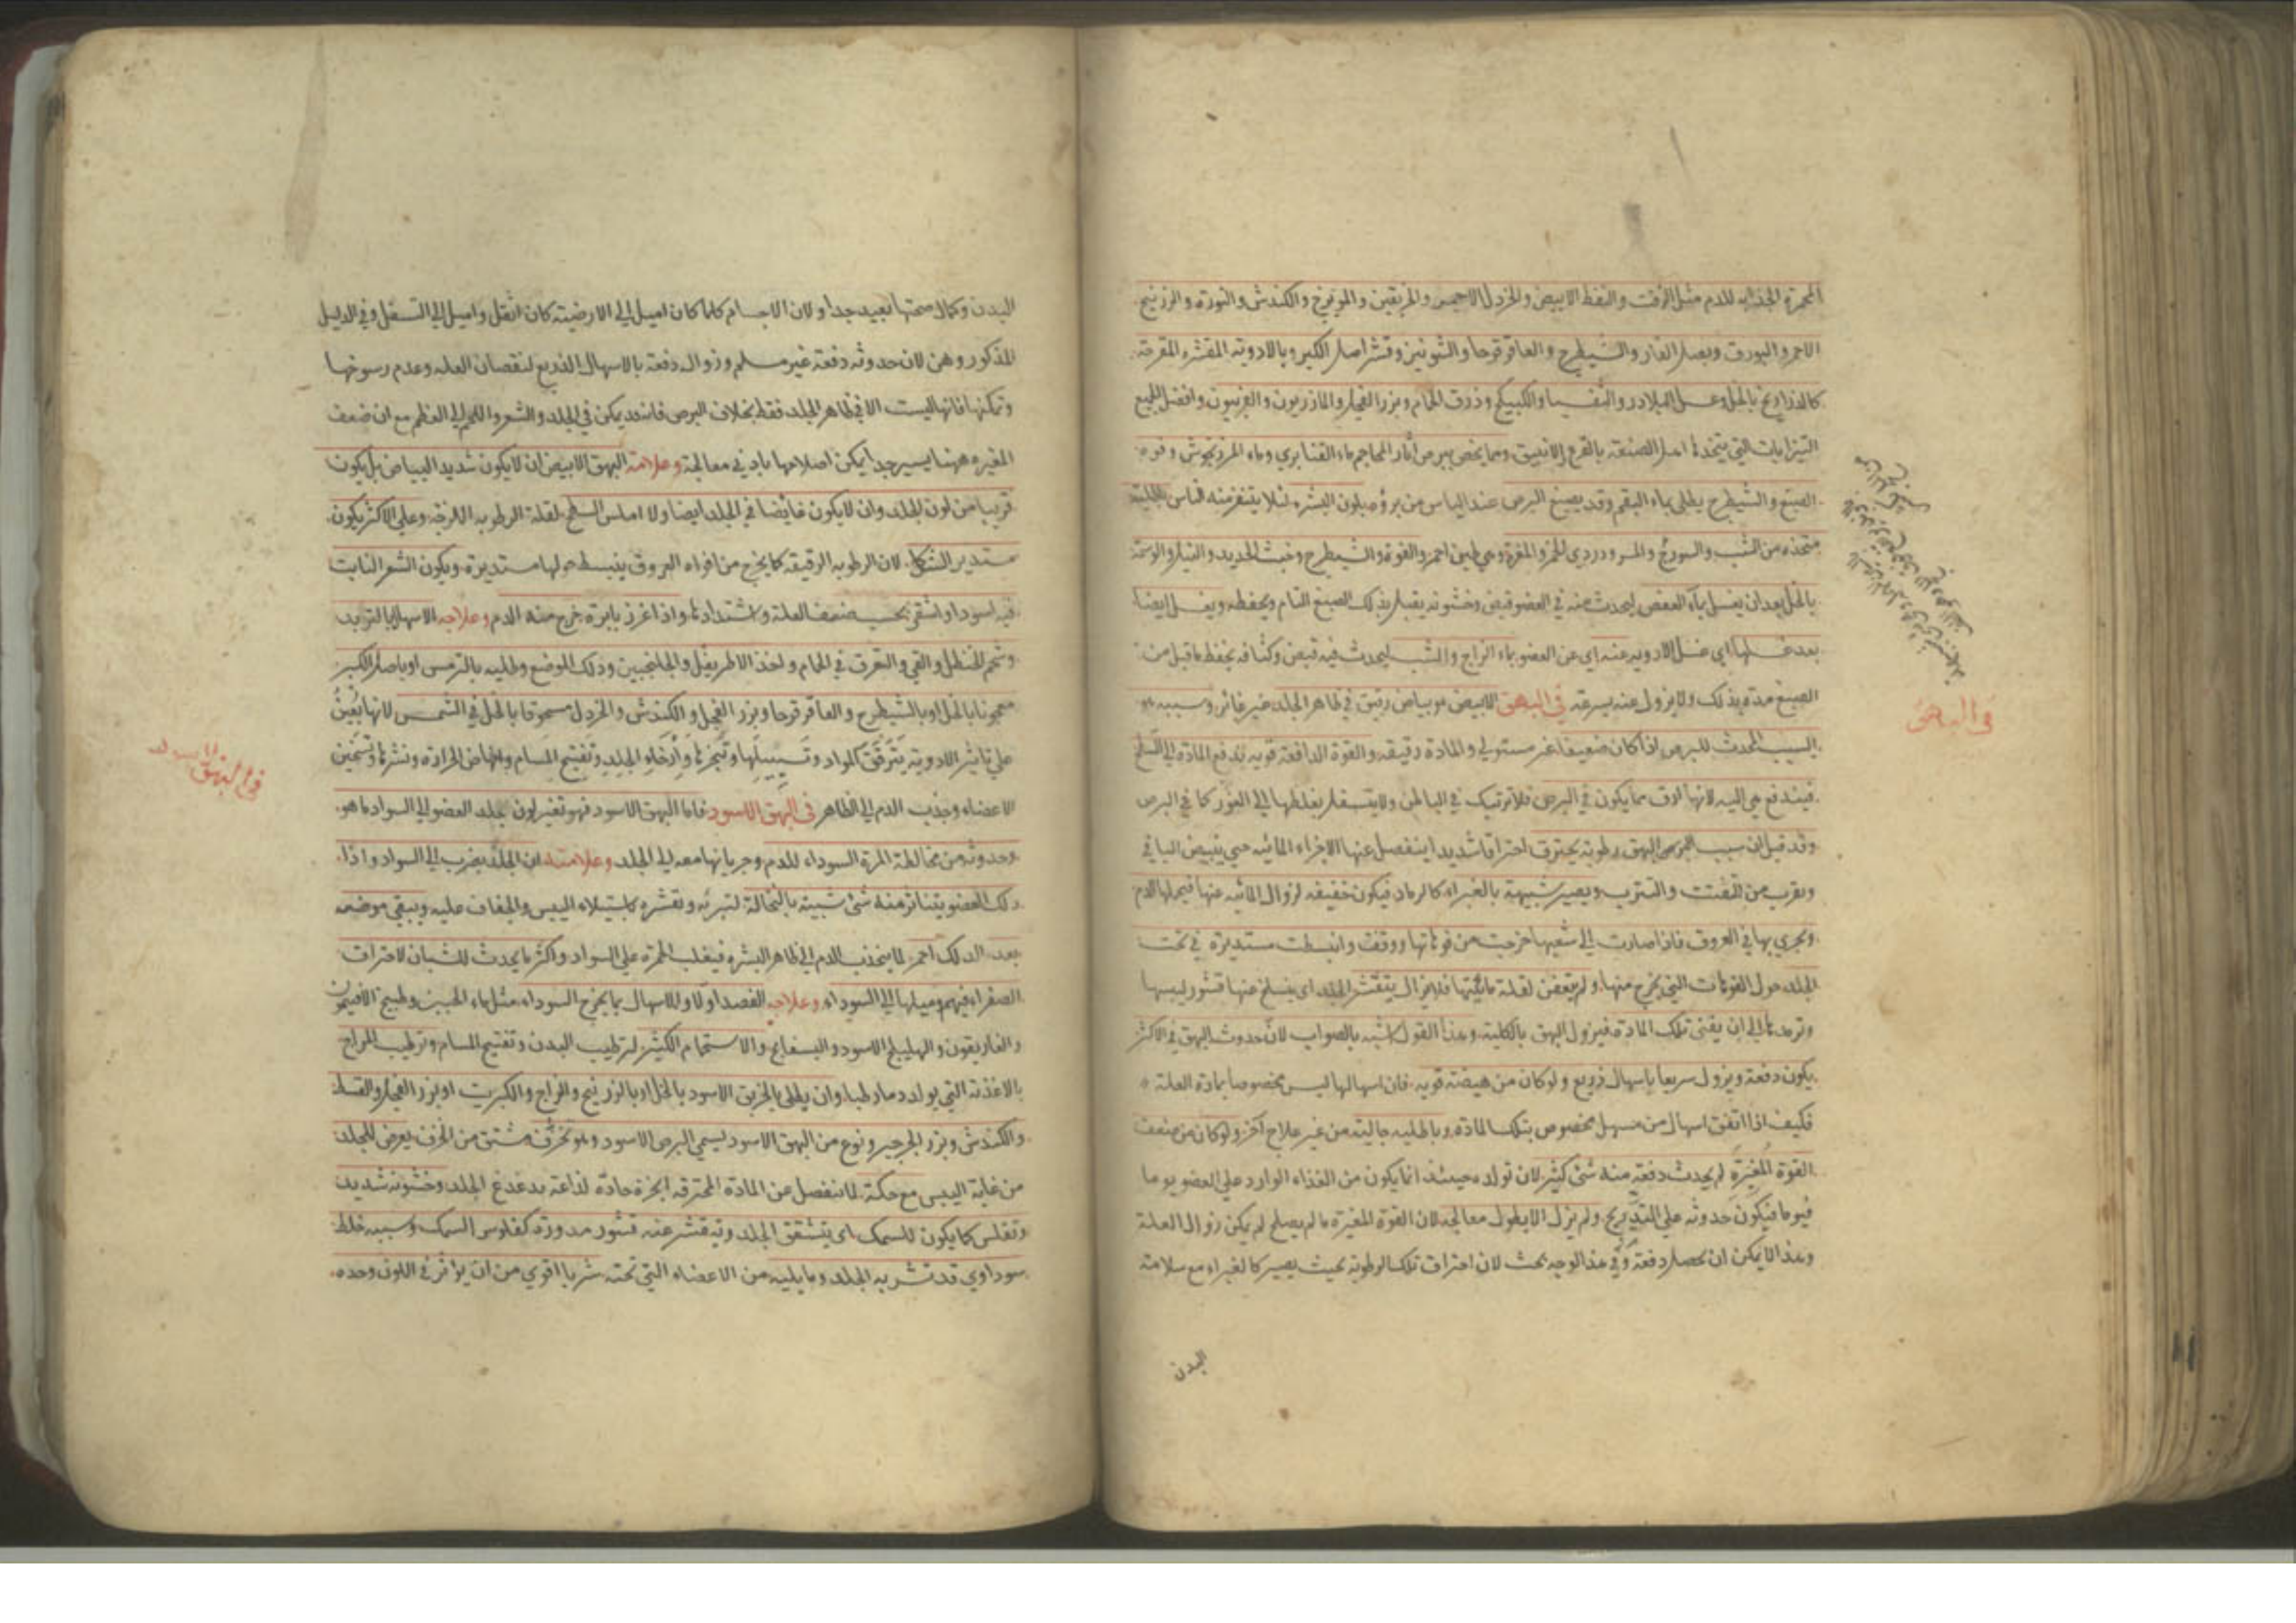 المحمرة الجذابة للدم مثل الزفت والنفط الابيض والخردل الاحمر والخربقين والمويزج والكندش والنورة والزرنيخ
الاحمر والبورق وبصل الفار والشيطرج والعاقرقرحا والشونيز وقشر اصل الكبر وبالادوية المقشرة المقرحة
كالذراريح بالخل وعسل البلادر والثفسيا والكبيكج وذرق الحمام وبزر الفجل والمازريون والفربيون وافضل الجميع
التيزابات التي يتخذها اهل الصنعة بالقرع والانبيق ومما يخص ببرص آثار المحاجم ماء القنابري وماء المرزنجوش وفوه
الصبغ والشيطرج يطلى بماء البقم وقد يصبغ البرص عند الياس من برؤه بلون البشرة لئلا يتنفر منه الناس
متخذه من الشب والسورج ودردي الخمر والمغرة وهي طين احمر والفوة والشيطرج وخبث الحديد والنيل والوسمة
بالخل بعد ان يغسل بماء العفص ليحدث منه في العضو قبض وخشونه يقبل بذلك الصبغ التام ويحفظه ويغسل ايضا
بعد غسلها اي غسل الادويه عنه اي عن العضو بماء الزاج والشب ليحدث فيه قبض وكثافه يحفظ ما قبل من
الصبغ مدة بذلك ولا يزول عنه بسرعه في البهق الابيض هو بياض رقيق في ظاهر الجلد غير غائر وسببه
السبب المحدث للبرص اذا كان ضعيفا غير مستولي والمادة رقيقه والقوة الدافعة قويه تدفع المادة الي السطح
فيندفع هي اليه لانها ارق مما يكون في البرص فلا ترتبك في الباطن ولا يتسفل بغلظها الي الغور كما في البرص
وقد قيل ان سبب البهق رطوبة يحترق احتراقا شديدا ينفصل عنها الاجزاء المائيه حتى يبيض الباقي
ويقرب من التفتت والتترب ويصير شبيهة بالغبراء كالرماد فيكون خفيفه لزوال المائيه عنها فيحملها الدم
ويجري بها في العروق فاذا صارت الي شعبها خرجت من فوهاتها ووقفت وانبسطت مستديرة في تحت
الجلد حول الفوهات التي يخرج منها ولم يتعفن لقلة مائيتها فلا يزال يتقشر الجلد اى ينسلخ عنها قشور ليبسها
وترمدها الي ان يفنى تلك المادة فيزول البهق بالكلية وهذا القول اشبه بالصواب لان حدوث البهق في الاكثر
يكون دفعة ويزول سريعا باسهال ذريع ولو كان من هيضة قويه فان اسهالها ليس مخصوصا بمادة العلة
فكيف اذا اتفق اسهال من مسهل مخصوص بتلك المادة وباطليه جاليه من غير علاج آخر ولو كان من ضعف
القوة المغيرة لم يحدث دفعة منه شئ كثير لان تولده حينئذ انما يكون من الغذاء الوارد علي العضو يوما
فيوما فيكون حدوثه علي التدريج ولم يزل الا بطول معالجه لان القوة المغيرة ما لم يصلح لم يكن زوال العلة
وهذا لا يمكن ان يحصل دفعة وفي هذا الوجه بحث لان احتراق تلك الرطوبة بحيث يصير كالغبراء مع سلامة
البدن
في البهق
البدن وكمال صحتها بعيد جدا ولان الاجسام كلما كان اميل الي الارضيته كان اثقل واميل الي التسفل وفي الدليل
المذكور وهن لان حدوثه دفعة غير مسلم وزواله دفعة بالاسهال الذريع لنقصان العله وعدم رسوخها
وتمكنها فانها ليست الا في ظاهر الجلد فقط بخلاف البرص فانه قد يمكن في الجلد والشعر واللحم الي العظم مع ان ضعف
المغيره ههنا يسير جدا يمكن اصلاحها بادني معالجة وعلامة البهق الابيض ان لا يكون شديد البياض بل يكون
قريبا من لون الجلد وان لا يكون غايضا في الجلد ايضا ولا املس السطح لقلة الرطوبه اللزجه وعلي الاكثر يكون
مستدير الشكل لان الرطوبه الرقيقه كما يخرج من افواه العروق ينبسط حولها مستديرة ويكون الشعر النابت
فيه اسود او اشقر بحسب ضعف العلة واشتدادها واذا غرز بابرة خرج منه الدم وعلاجه الاسهال بالتربد
وشحم الحنظل والقي والتعرق في الحمام واخذ الاطريفل والجلنجبين ودلك الموضع وطليه بالترمس او باصل الكبر
معجونا بالخل او بالشيطرج والعاقرقرحا وبزر الفجل والكندش والخردل مسحوقا بالخل في الشمس لانها يعين
علي تاثير الادوية بترقيق المواد وتسييلها وتبخرها وارخاء الجلد وتفتيح المسام وانهاض الحرارة ونشرها وتسخين
الاعضاء وجذب الدم الي الظاهر في البهق الاسود فاما البهق الاسود فهو تغير لون جلد العضو الي السواد ما هو
وحدوثه من مخالطة المرة السوداء للدم وجريانها معه الي الجلد وعلامته ان الجلد يضرب الي السواد واذا
دلك العضو يتناثر منه شئ شبيه بالنخالة لتبريه وتقشره باستيلاء اليبس والجفاف عليه ويبقى موضعه
بعد الدلك احمر لما ينجذب الدم الي ظاهر البشرة فيغلب الحمرة علي السواد واكثر ما يحدث للشبان لاحتراق
الصفراء فيهم وميلها الي السوداء وعلاجه الفصد اولا والاسهال بما يخرج السوداء مثل ماء الجبن وطبيخ الافتيمون
والغاريقون والهليلج الاسود والبسفايج والاستحمام الكثير لترطيب البدن وتفتيح المسام وترطيب المزاج
بالاغذية التي يولد دما رطبا وان يطلى بالخربق الاسود بالخل او بالزرنيخ والزاج والكبريت او بزر الفجل والقسط
والكندش وبزر الجرجير ونوع من البهق الاسود يسمي البرص الاسود وهو تخزف مشتق من الخزف يعرض للجلد
من غاية اليبس مع حكة لما ينفصل عن المادة المحترقه ابخرة حادة لذاعة يدغدغ الجلد وخشونه شديد
وتفلس كما يكون للسمك اى يتشقق الجلد ويتقشر عنه قشور مدورة كفلوس السمك وسببه خلط
سوداوي قد تشربه الجلد وما يليه من الاعضاء التي تحته شربا اقوي من ان يؤثر في اللون وحده
في البهق الاسود